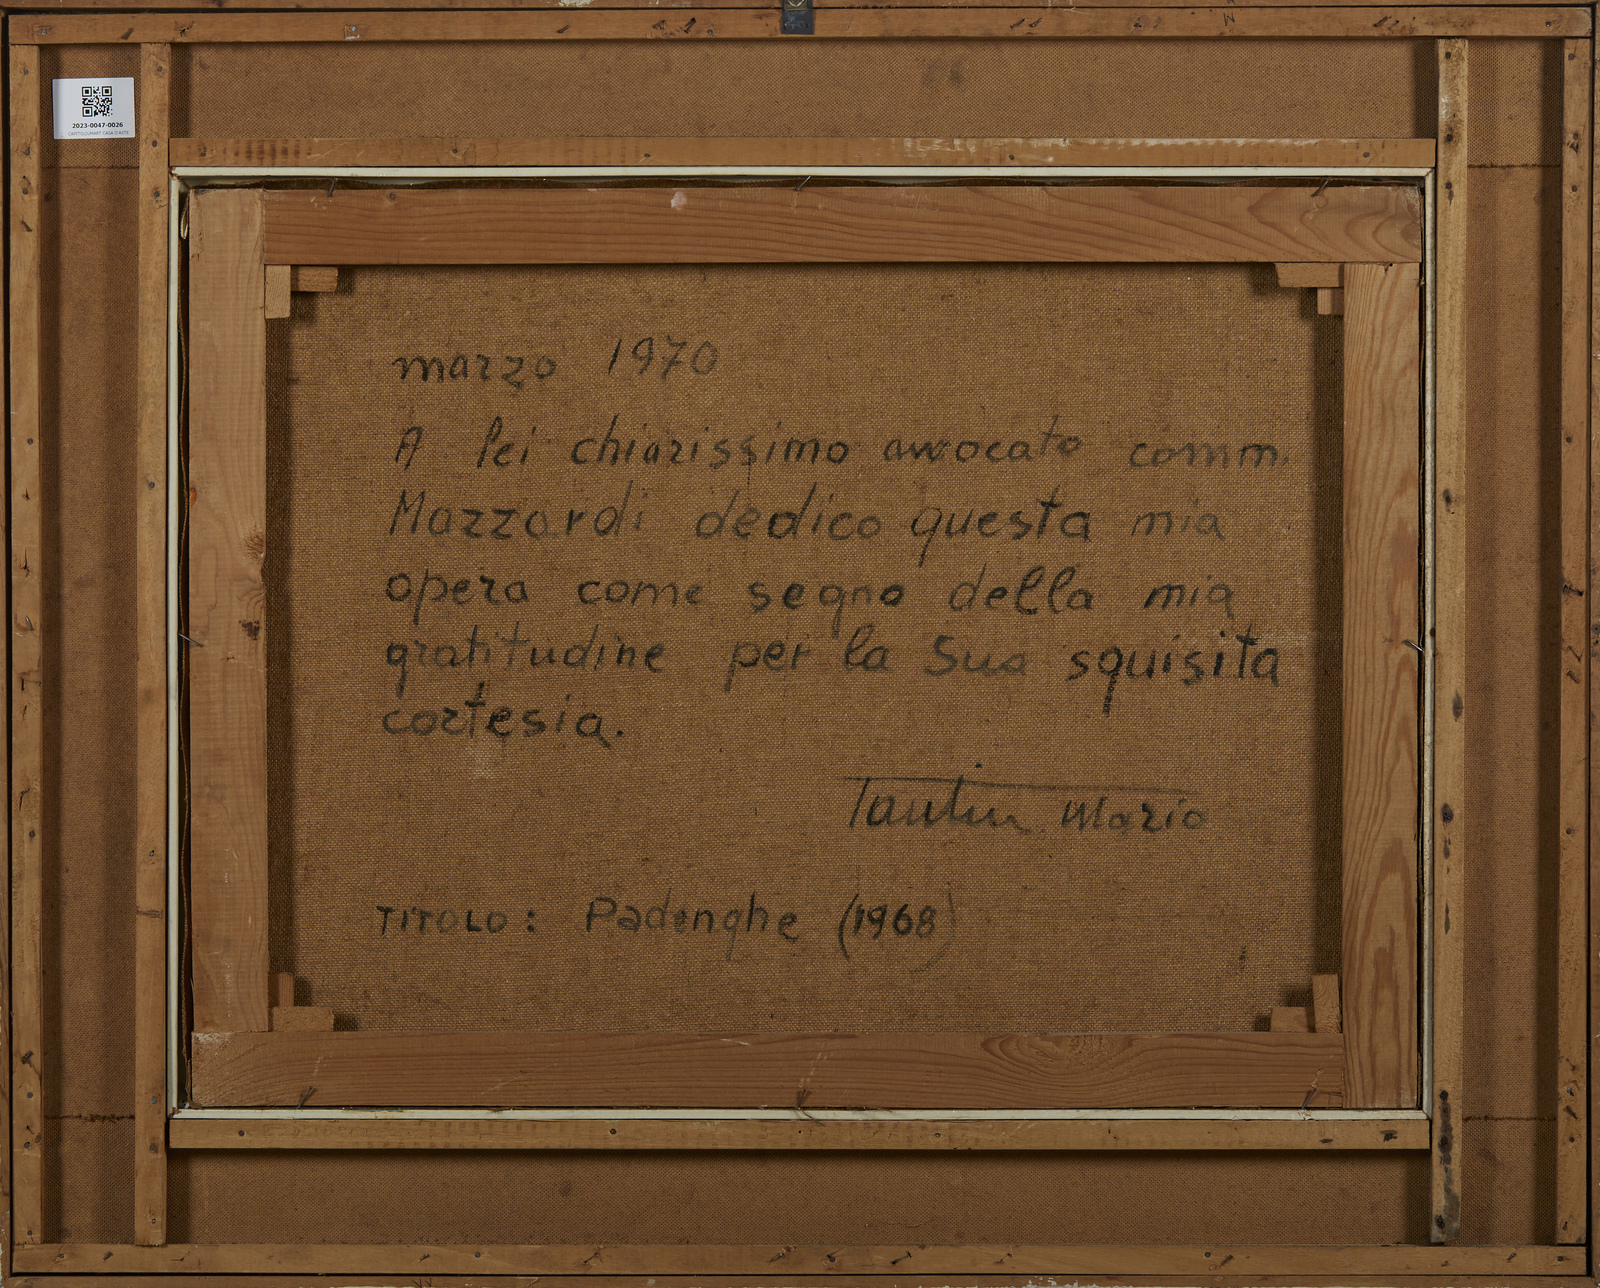 2023-0047-0026
CAPITOLIUMART CASA D'ASTE
marzo 1970
A lei chiarissimo avvocato comm.
Mazzardi dedico questa mia
opera come segno della mia
gratitudine per la Sua squisita
cortesia.
Mario
TITOLO: Padenghe (1968)